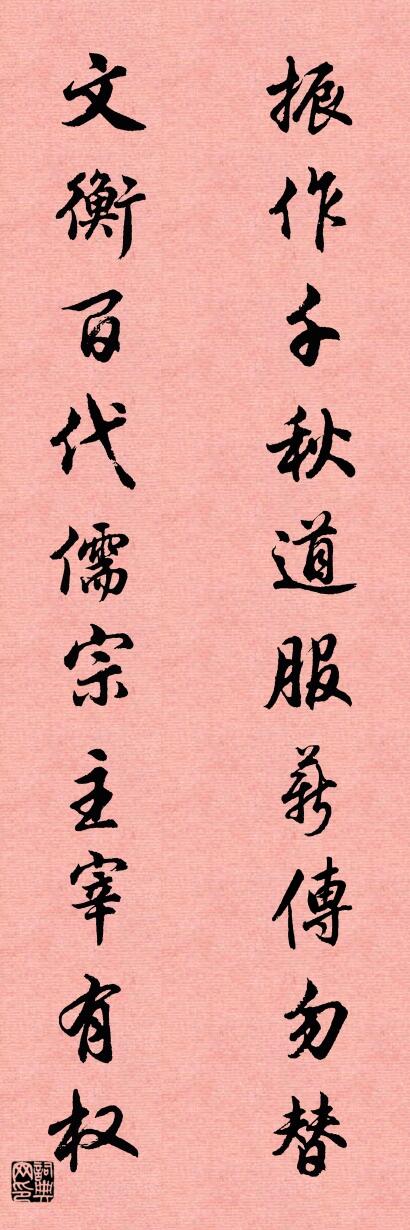 振作千秋道服薪傳勿替
文衡百代儒宗主宰有权
詞典网印